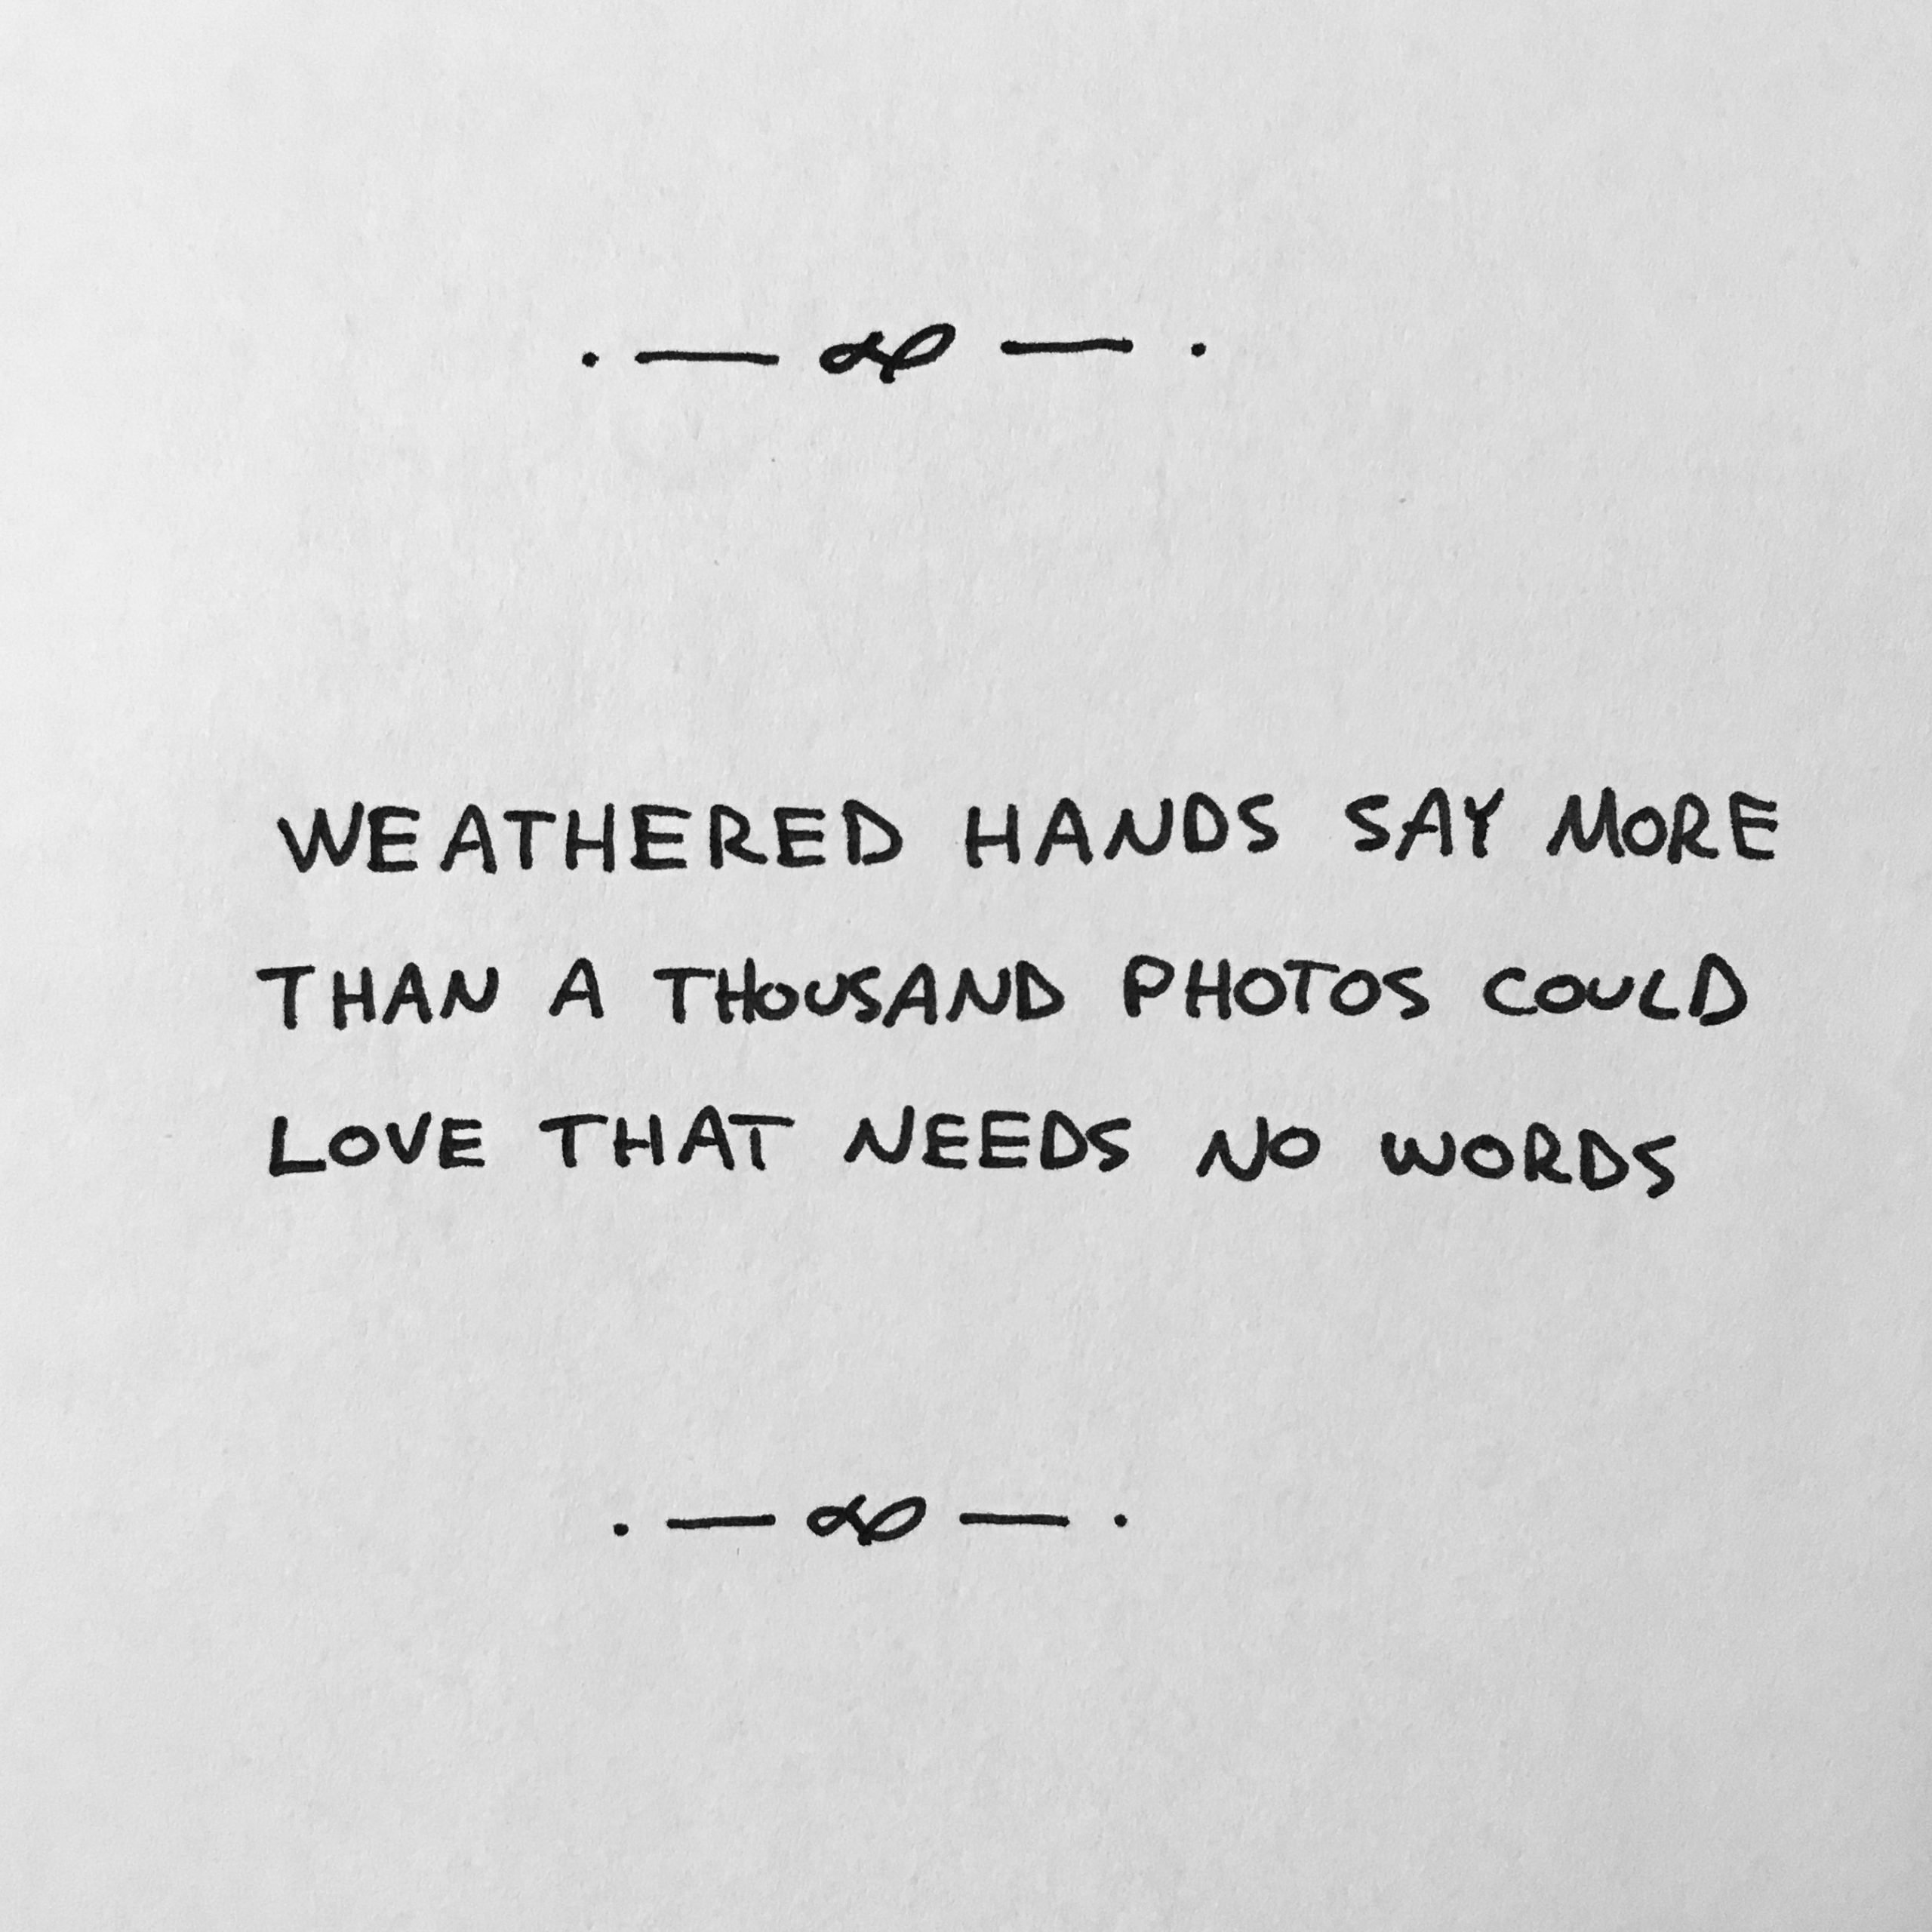 WEATHERED HANDS SAY MORE
THAN A THOUSAND PHOTOS COULD
LOVE THAT NEEDS NO WORDS